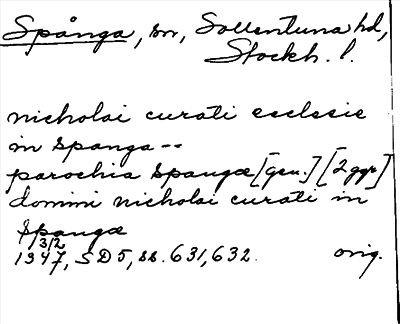 Spånga, sn, Sollentuna hd,
Stockh. l.
nicholai curati ecclesie
in spanga --
parochia spangæ [gen.] [2 ggr]
domini nicholai curati in
spangæ
3/2
1347, SD5, ss. 631, 632. orig.